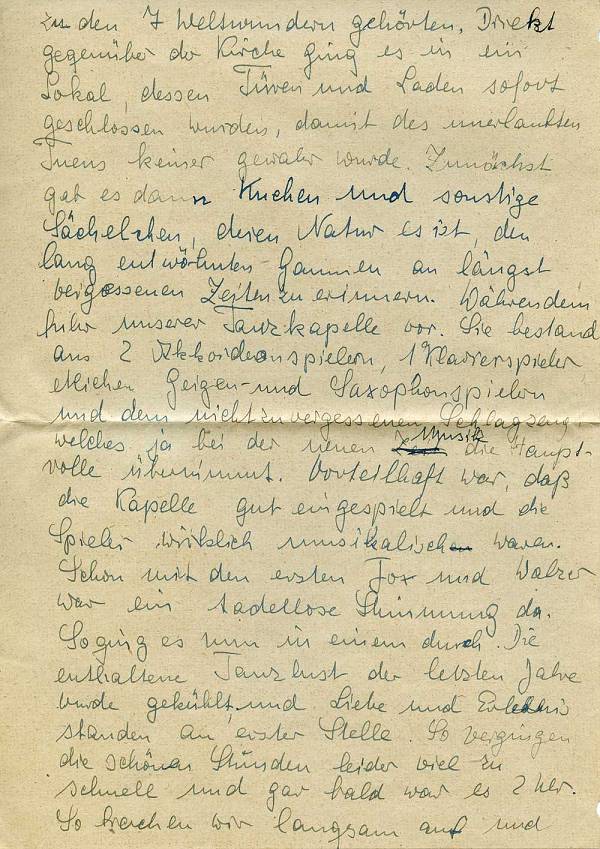 zu den 7 Weltwundern gehörten. Direkt
gegenüber der Kirche ging es in ein
Lokal, dessen Türen und Laden sofort
geschlossen wurden, damit des unerlaubten
Tuens keiner gewahr wurde. Zunächst
gab es dann Kuchen und sonstige
Sächelchen, deren Natur es ist, den
lang entwöhnten Gaumen an längst
vergessenen Zeiten zu erinnern. Währendem
fuhr unserer Tanzkapelle vor. Sie bestand
aus 2 Akkordeonspielern, 1 Klavierspieler
etlichen Geigen- und Saxophonspielern
und dem nicht zu vergessenen Schlagzeug
welches ja bei der neuen Musik die Haupt-
rolle übernimmt. Vorteilhaft war, daß
die Kapelle gut eingespielt und die
Spieler wirklich musikalisch waren.
Schon mit den ersten Fox und Walzer
war ein tadellose Stimmung da.
So ging es nun in einem durch. Die
enthaltene Tanzlust der letzten Jahre
wurde gekühlt, und Liebe und Erlebnis
standen an erster Stelle. So vergingen
die schönen Stunden leider viel zu
schnell und gar bald war es 2 Uhr.
So brachen wir langsam auf und